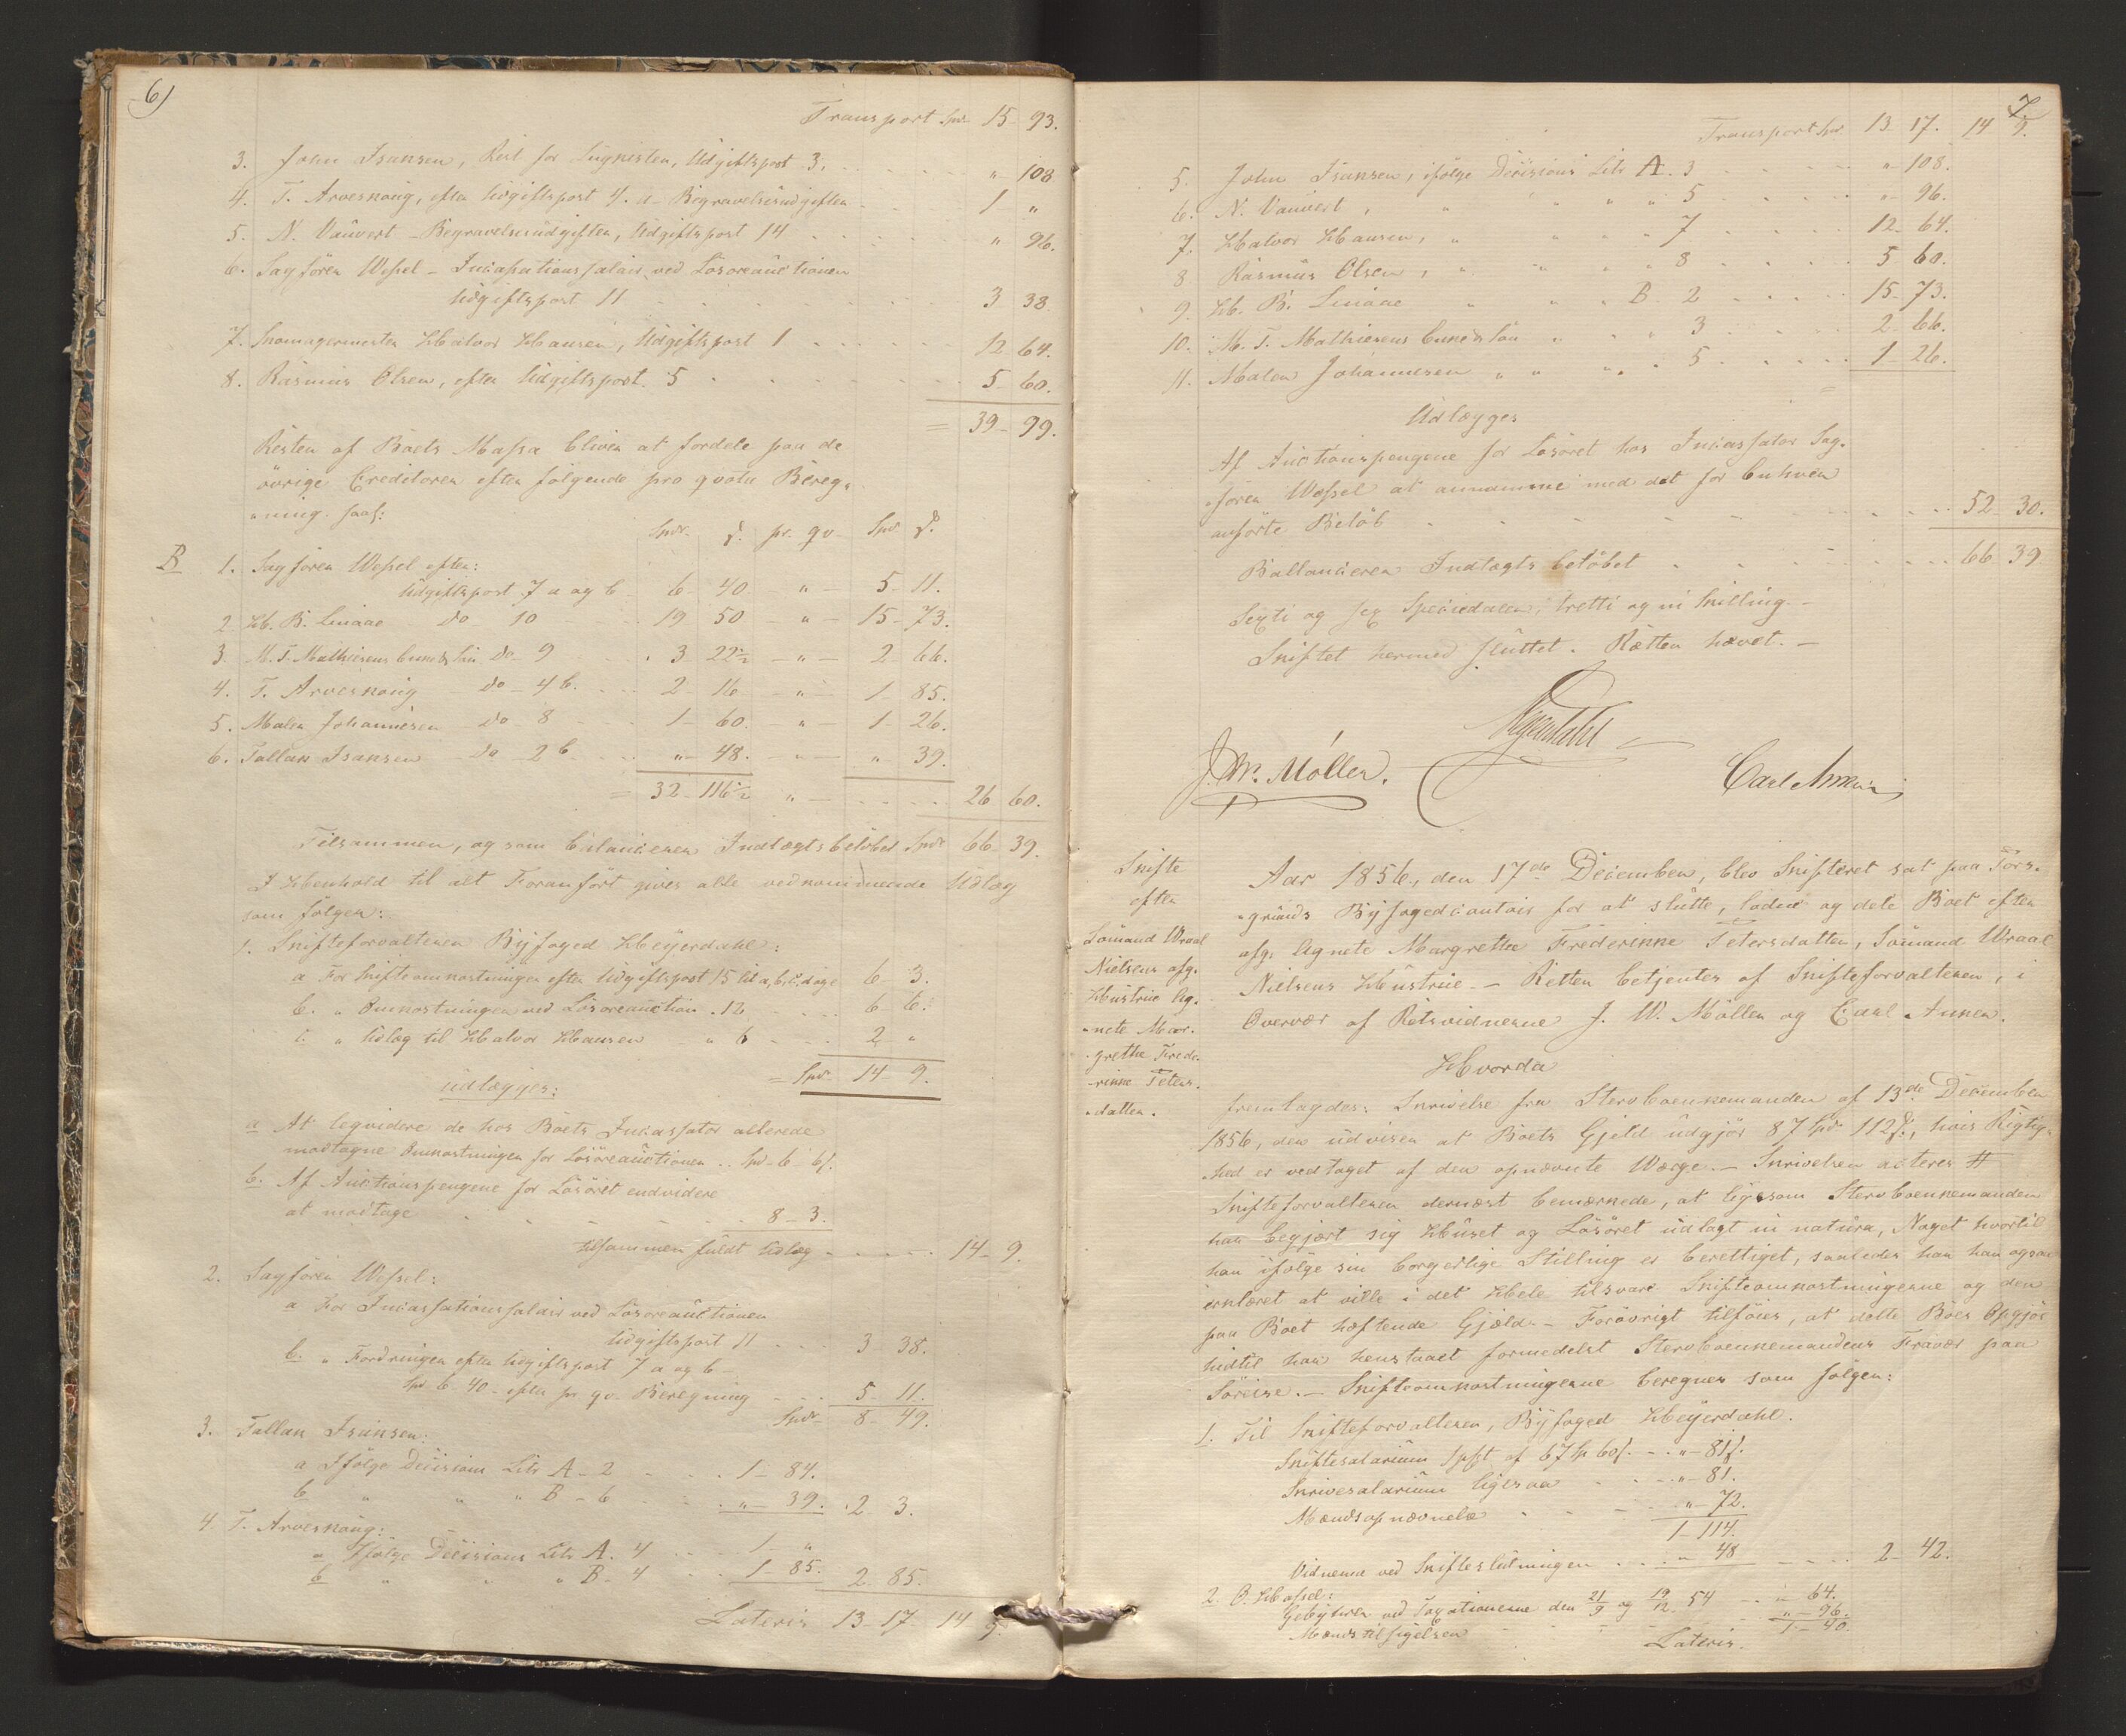 6)
Transport Spd. 15 - 93.
3. John Isaksen, Rest for Liigkisten, Udgiftspost 3. " 108
4. T. Arveskoug, efter Udgiftspost 4. a - Begravelsesudgifter 1 - "
5. N. Vauvert - Begravelsesudgifter, Udgiftspost 14 " 96.
6. Sagfører Wessel - Incassationssalair ved Løsøreauctionen
Udgiftspost 11 3 38.
7. Skomagermester Halvor Hansen, Udgiftspost 1 12 - 64.
8. Rasmus Olsen, efter Udgiftspost 5 5 - 60.
= 39 - 99.
Resten af Boets Massa bliver at fordele paa de
øvrige Creditorer efter følgende pro qvota Bereg-
"ning. saas:
Spdr. ß. pr. qv. Spd ß.
B 1. Sagfører Wessel efter:
Udgiftspost 7 a og b 6 - 40 - " - 5 - 11.
2. H. B. Linaae - do - 10 19 - 50 - " - 15 - 73.
3. M. T. Mathiesens Enke & Søn do - 9 3 - 22½ - " - 2 - 66.
4. T. Arveskoug - do - 4 b. 2 - 16 " - 1 - 85.
5. Malen Johannesen do - 8 1 - 60. " - 1 - 26.
6. Tallak Isaksen - do - 2 b " - 48. - " - " 39.
= 32 - 116½ " - 26 60.
Tilsammen, og som balancerer Indtægtsbeløbet Spd 66 - 39.
I Henhold til alt Foranført gives alle vedkommende Udlæg
som følger:
1. Skifteforvalteren Byfoged Heyerdahl:
a For Skifteomkostninger efter Udgiftspost 15 lit a, b, c, d og e 6 - 3.
b. " Omkostninger ved Løsøreauction . 12. 6 - 6.
c. " Udlæg til Halvor Hansen " 6 2 - "
= Spd. 14 - 9.
udlægges:
a At leqvidere de hos Boets Incassator allerede
modtagne Omkostninger for Løsøreauctionen .. Spd - 6 - 6ß.
b. Af Auctionspengene for Løsøret endvidere
at modtage 8 - 3.
tilsammen fuldt Udlæg 14 - 9.
2. Sagfører Wessel:
a For Incassationssalair ved Løsøreauctionen
Udgiftspost 11 3 - 38.
b. " Fordringer efter Udgiftspost 7 a og b
Spd 6 - 40 - efter pr. qv. Beregning 5 - 11.
Spdr. 8 - 49.
3. Tallak Isaksen:
a Ifølge Decisions Litr A - 2 1 - 84.
b " " " B - 6 " - 39. 2 3.
4 T. Arveskoug:
a Ifølge Decisions Litr A. 4 1 - "
b " " " B - 4 1 - 85. 2 - 85.
Lateris 13 - 17 - 14 9.
7.
Transport Spd 13 - 17. 14 9.
5. John Isaksen, ifølge Decisions Litr A. 3 " - 108.
6. N. Vauvert, " " " " 5 " - 96.
7. Halvor Hansen, " " " " 7 12 - 64.
8 Rasmus Olsen, " " " " 8 5 60.
9. H. B. Linaae " " " B 2 15 - 73.
10. M. T. Mathiesens Enke & Søn " " " 3 2 - 66.
11. Malen Johannesen " " " " 5 1 - 26.
Udlægges
Af Auctionspengene for Løsøret hos Incassator Sag-
"fører Wessel at annamme med det for Enhver
anførte Beløb 52 - 30.
Ballancerer Indtægtsbeløbet 66 39
Sexti og sex Speciedaler, tretti og ni Skilling. -
Skiftet hermed sluttet. Retten hævet. -
Heyerdahl
J. W. Møller. Carl Anker
Skifte
efter
Sømand Wraal
Nielsens afg.
Hustrue Ag-
"nete Mar-
"grethe Frede-
"rikke Peters-
"datter.
Aar 1856, den 17de December, blev Skifteret sat paa Fors-
"grunds Byfogedcontoir for at slutte, lodne og dele Boet efter
afg. Agnete Margrethe Frederikke Petersdatter, Sømand Wraal
Nielsens Hustrue. - Retten betjentes af Skifteforvalteren, i
Overvær af Retsvidnerne J. W. Møller og Carl Anker.
Hvorda
fremlagdes: Skrivelse fra Stervboenkemanden af 13de December
1856, der udviser at Boets Gjeld udgjør 87 Spd 112ß., hvis Rigtig-
"hed er vedtaget af den opnævnte Værge. - Skrivelsen acteres #
Skifteforvalteren dernæst bemærkede, at ligesom Stervboenkemanden
har begjært sig Huset og Løsøret udlagt in natura, Noget hvortil
han ifølge sin borgerlige Stilling er berettiget, saaledes har han ogsaa
erklæret at ville i det Hele tilsvare Skifteomkostningerne og den
paa Boet heftende Gjæld. - Forøvrigt tilføies, at dette Boes Opgjør
hidtil har henstaaet formedelst Stervboenkemandens Fravær paa
Søreise. - Skifteomkostningerne beregnes som følger:
1. Til Skifteforvalteren, Byfoged Heyerdahl.
Skiftesalarium 1 pCt af 67 Sp 60ß. " - 81ß.
Skriversalarium ligesaa " - 81.
Mændsopnævnelse " - 72.
1 - 114.
Vidnerne ved Skifteslutningen " 48 2 - 42.
2. O. Hassel:
Gebyhrer ved Taxationerne den 21/9 og 19/12 54 " 64.
Mændstilsigelsen " - 96.
1 - 40.
Lateris.